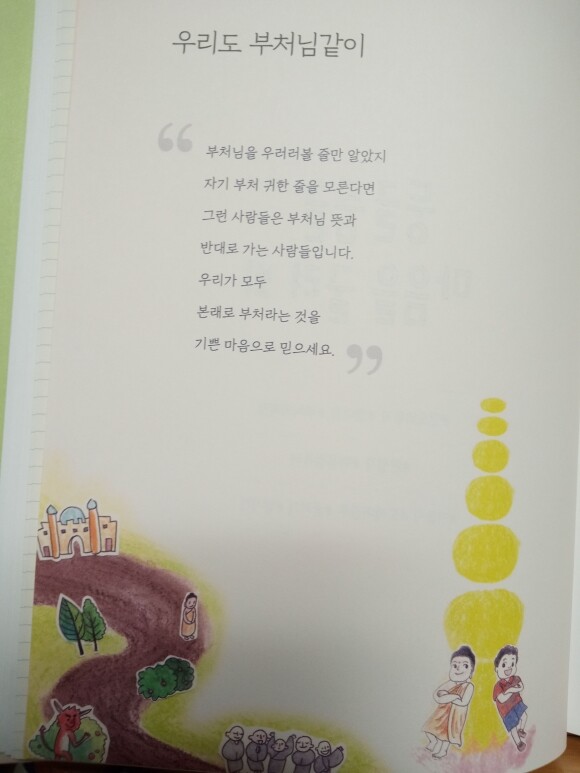 우리도 부처님같이
“
부처님을 우러러볼 줄만 알았지
자기 부처 귀한 줄을 모른다면
그런 사람들은 부처님 뜻과
반대로 가는 사람들입니다.
우리가 모두
본래로 부처라는 것을
기쁜 마음으로 믿으세요.
”